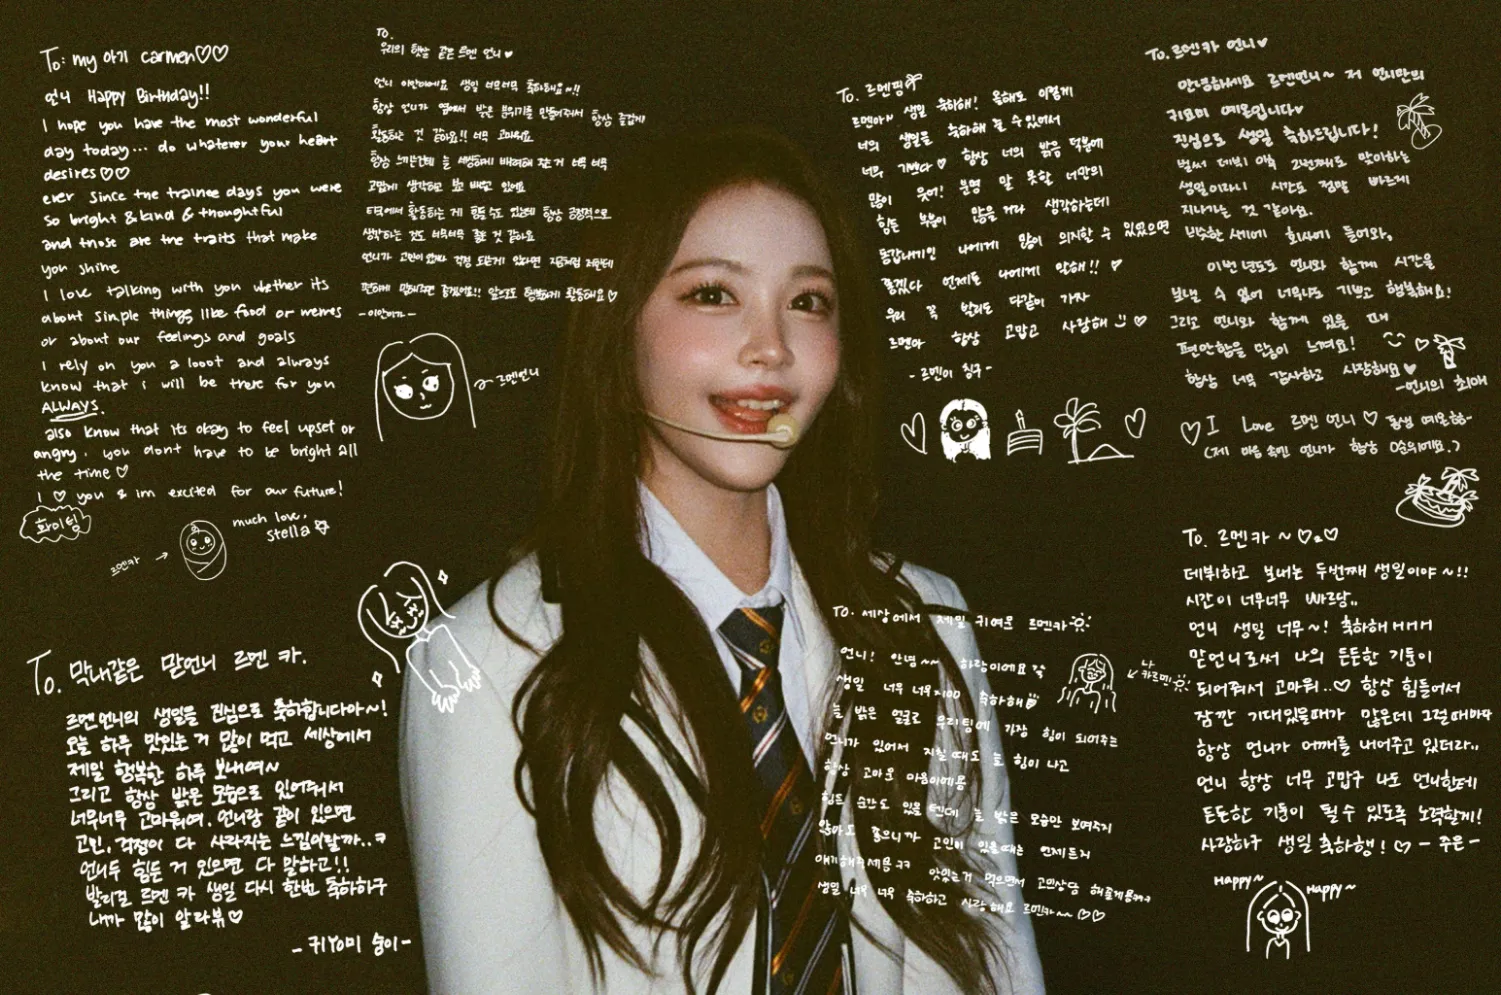 To: my 아기 carmen♡♡
언니 Happy Birthday!!
I hope you have the most wonderful
day today... do whatever your heart
desires♡♡
ever since the trainee days you were
so bright & kind & thoughtful
and those are the traits that make
you shine
I love talking with you whether its
about simple things like food or memes
or about our feelings and goals
I rely on you a looot and always
know that i will be there for you
ALWAYS.
also know that its okay to feel upset or
angry. you don't have to be bright all
the time♡
I ♡ you & im excited for our future!
화이팅
much love,
stella
르멘카 →
To.
우리의 햇살 같은 르멘 언니♥
언니 이안이에요 생일 너무너무 축하해요~!!
항상 언니가 옆에서 밝은 분위기를 만들어줘서 항상 즐겁게
활동하는 것 같아요!! 너무 고마워요
항상 느끼는건데 늘 세심하게 배려해 주는거 너무 너무
고맙게 생각하고 보고 배우고 있어요
타국에서 활동하는 게 힘들 수도 있는데 항상 긍정적으로
생각하는 것도 너무너무 좋은 것 같아요
언니가 고민이 있거나 걱정 되는게 있다면 지금처럼 저한테
편하게 말해주면 좋겠어요!! 앞으로도 행복하게 활동해요♡
-이안이가-
르멘언니
To. 르멘핑
르멘아~ 생일 축하해! 올해도 이렇게
너의 생일을 축하해 줄 수 있어서
너무 기쁘다♡ 항상 너의 밝음 덕분에
많이 웃어! 분명 말 못할 너만의
힘든 부분이 많을거라 생각하는데
동갑내기인 나에게 많이 의지할 수 있었으면
좋겠다 언제든 나에게 말해!! ♡
우리 꼭 발리도 다같이 가자
르멘아 항상 고맙고 사랑해 ♡
-르멘이 친구-
To. 르멘카 언니♥
안녕하세요 르멘언니~ 저 언니만의
귀요미 예온입니다♥
진심으로 생일 축하드립니다!
벌써 데뷔 이후 2번째로 맞이하는
생일이라니 시간도 정말 빠르게
지나가는 것 같아요.
비슷한 시기에 회사에 들어와,
이번 년도도 언니와 함께 시간을
보낼 수 있어 너무나도 기쁘고 행복해요!
그리고 언니와 함께 있을 때
편안함을 많이 느껴요! ♡
항상 너무 감사하고 사랑해요♥
-언니의 최애
♡ I Love 르멘 언니♡ 동생 예온이-
(제 마음 속엔 언니가 항상 0순위에요.)
To. 막내같은 맏언니 르멘 카.
르멘언니의 생일을 진심으로 축하합니다아~!
오늘 하루 맛있는 거 많이 먹고 세상에서
제일 행복한 하루 보내여~
그리고 항상 밝은 모습으로 있어줘서
너무너무 고마워여. 언니랑 같이 있으면
고민, 걱정이 다 사라지는 느낌이랄까..ㅋ
언니두 힘든 거 있으면 다 말하고!!
발리로 르멘 카 생일 다시 한번 축하하구
내가 많이 알라뷰♡
-귀YOMI 숭이-
To. 세상에서 제일 귀여운 르멘카
언니! 안녕~~ 하랑이에요
생일 너무 너무×100 축하해
늘 밝은 얼굴로 우리팀에 가장 힘이 되어주는
언니가 있어서 지칠 때도 늘 힘이 나고
항상 고마운 마음이에용
힘든 순간도 있을 텐데 늘 밝은 모습만 보여주지
않아도 좋으니까 고민이 있을때는 언제든지
얘기해주세용ㅋㅋ 맛있는거 먹으면서 고민상담 해줄게용ㅋㅋㅋ
생일 너무 너무 축하하고 사랑해요 르멘카~~ ♡♡
나
카르멘
To. 르멘카 ~ ♡.♡
데뷔하고 보내는 두번째 생일이야~!!
시간이 너무너무 빠르당..
언니 생일 너무~! 축하해ㅐㅐㅐ
맏언니로써 나의 든든한 기둥이
되어줘서 고마워..♡ 항상 힘들어서
잠깐 기대있을때가 많은데 그럴때마다
항상 언니가 어깨를 내어주고 있더라..
언니 항상 너무 고맙구 나도 언니한테
든든한 기둥이 될 수 있도록 노력할게!
사랑하구 생일 축하행! ♡ -주은-
Happy~
Happy~